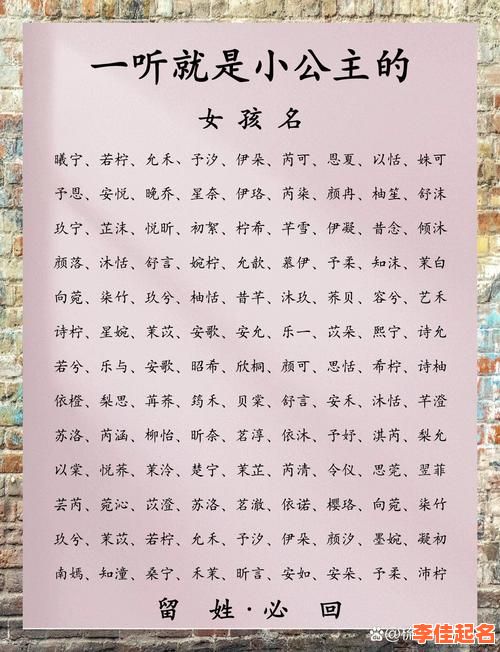 一听就是小公主的
女孩名
曦宁、若柠、允禾、予汐、伊朵、芮可、恩夏、以恬、姝可
予恩、安悦、晚乔、星奈、伊珞、芮柒、颜冉、柚笙、舒沫
玖宁、芷沫、悦昕、初絮、柠希、芊雪、伊凝、昔念、倾沐
颜落、沐恬、舒言、婉柠、允歆、慕伊、予柔、知沫、茉白
向菀、柒竹、玖兮、柚恬、昔芊、沐玖、荞贝、容兮、艺禾
诗柠、星婉、茉苡、安歌、安允、乐一、苡朵、熙宁、诗允
若兮、乐与、安歌、昭希、欣桐、颜可、思恬、希柠、诗柚
依橙、梨思、苒荞、筠禾、贝棠、舒言、安禾、沐恬、芊澄
苏洛、芮涵、柳怡、昕奈、茗淳、依沐、予妤、淇芮、梨允
以棠、悦荞、茉泠、楚宁、茉芷、芮清、令仪、思菀、翌菲
芸芮、菀沁、苡澄、苏洛、茗澈、依诺、樱珞、向菀、柒竹
玖兮、茉苡、若柠、允禾、予汐、伊朵、颜汐、墨婉、凝初
南嫣、知潼、桑宁、禾茉、昕言、安如、安朵、予柔、沛柠
留姓·必回
李佳起名